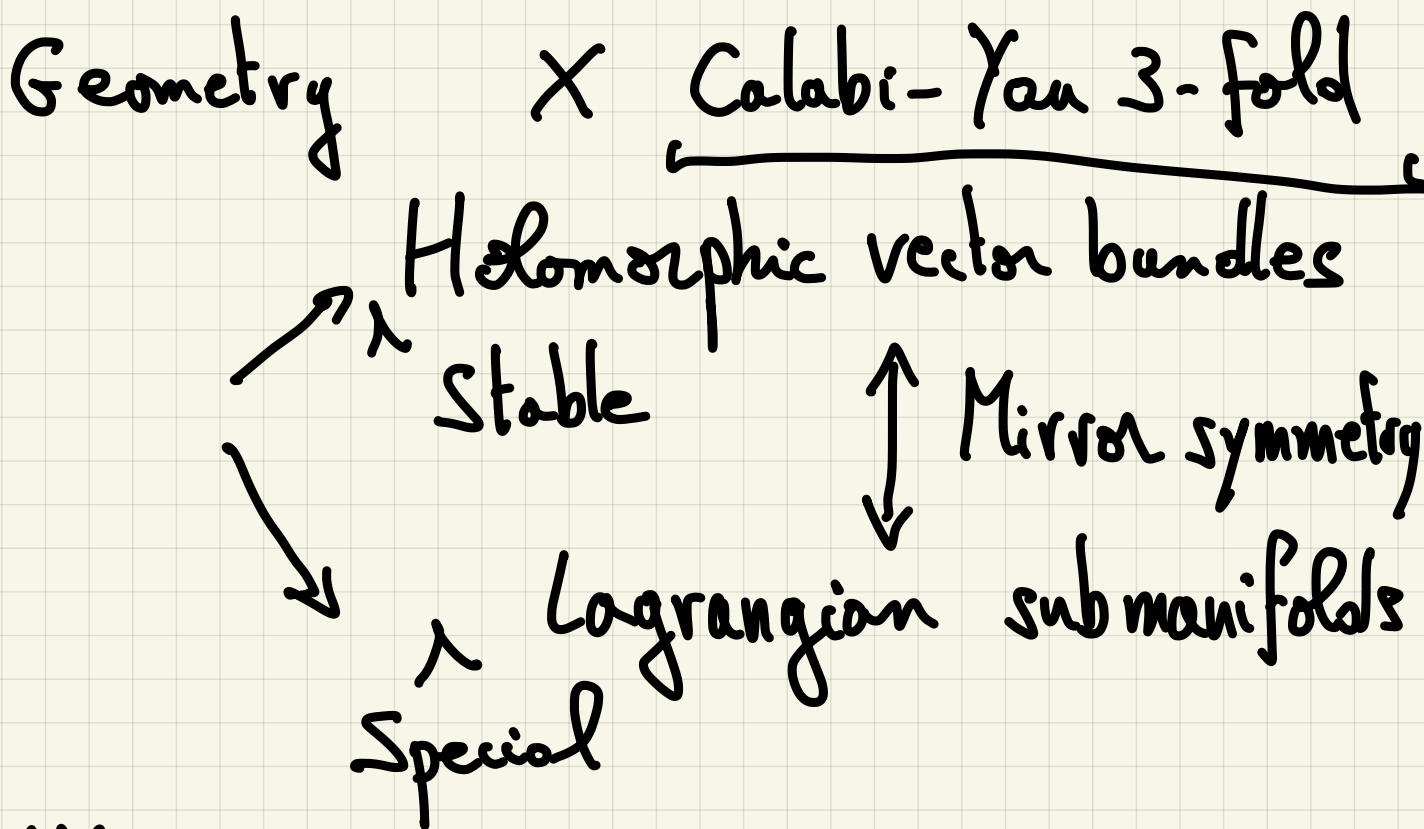 Geometry X Calabi-Yau 3-fold
Holomorphic vector bundles
Stable
Mirror symmetry
Lagrangian submanifolds
Special